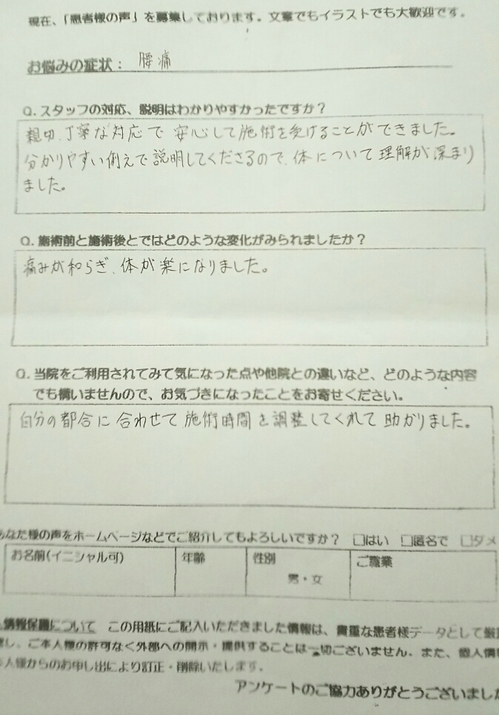 現在、「患者様の声」を募集しております。文章でもイラストでも大歓迎です。
お悩みの症状： 腰痛
Q. スタッフの対応、説明はわかりやすかったですか？
親切、丁寧な対応で 安心して施術を受けることができました。
分かりやすい例えで説明してくださるので、体について理解が深まり
ました。
Q. 施術前と施術後とではどのような変化がみられましたか？
痛みが和らぎ、体が楽になりました。
Q. 当院をご利用されてみて気になった点や他院との違いなど、どのような内容
でも構いませんので、お気づきになったことをお寄せください。
自分の都合に合わせて施術時間を調整してくれて助かりました。
あなた様の声をホームページなどでご紹介してもよろしいですか？ □はい □匿名で □ダメ
お名前(イニシャル可) 年齢 性別 ご職業
男・女
情報保護について この用紙にご記入いただきました情報は、貴重な患者様データとして厳
し、ご本人様の許可なく外部への開示・提供することは一切ございません。また、個人情
本人様からのお申し出により訂正・削除いたします。
アンケートのご協力ありがとうございました